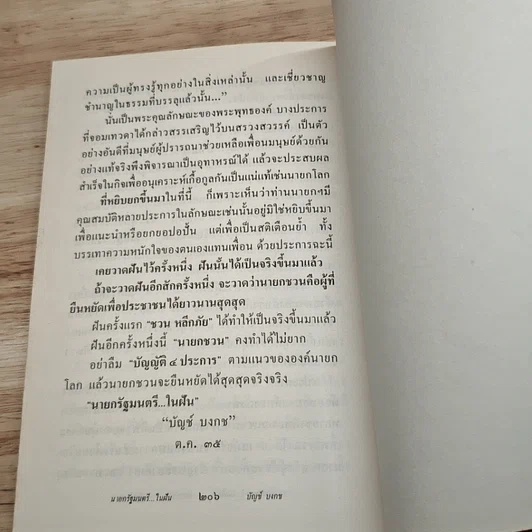 ความเป็นผู้ทรงรู้ทุกอย่างในสิ่งเหล่านั้น และเชี่ยวชาญ
ชำนาญในธรรมที่บรรลุแล้วนั้น..."
นั่นเป็นพระคุณลักษณะของพระพุทธองค์ บางประการ
ที่จอมเทวดาได้กล่าวสรรเสริญไว้บนสรวงสวรรค์ เป็นตัว
อย่างอันดีที่มนุษย์ผู้ปรารถนาช่วยเหลือเพื่อนมนุษย์ด้วยกัน
อย่างแท้จริงพึงพิจารณาเป็นอุทาหรณ์ได้ แล้วจะประสบผล
สำเร็จในกิจเพื่ออนุเคราะห์เกื้อกูลกันเป็นแน่แท้เช่นนายกโลก
ที่หยิบยกขึ้นมาในที่นี้ ก็เพราะเห็นว่าท่านนายกฯมี
คุณสมบัติหลายประการในลักษณะเช่นนั้นอยู่มิใช่หยิบขึ้นมา
เพื่อแนะนำหรือยกยอปอปั้น แต่เพื่อเป็นสติเตือนย้ำ ทั้ง
บรรเทาความหนักใจของตนเองแทนเพื่อน ด้วยประการฉะนี้
เคยวาดฝันไว้ครั้งหนึ่ง ฝันนั้นได้เป็นจริงขึ้นมาแล้ว
ถ้าจะวาดฝันอีกสักครั้งหนึ่ง จะวาดว่านายกชวนคือผู้ที่
ยืนหยัดเพื่อประชาชนได้ยาวนานสุดสุด
ฝันครั้งแรก "ชวน หลีกภัย" ได้ทำให้เป็นจริงขึ้นมาแล้ว
ฝันอีกครั้งหนึ่งนี้ "นายกชวน" คงทำได้ไม่ยาก
อย่าลืม "บัญญัติ ๔ ประการ" ตามแนวขององค์นายก
โลก แล้วนายกชวนจะยืนหยัดได้สุดสุดจริงจริง
"นายกรัฐมนตรี...ในฝัน"
"บัญช์ บงกช"
ต.ค. ๓๕
นายกรัฐมนตรี...ในฝัน ๒๐๖ บัญช์ บงกช